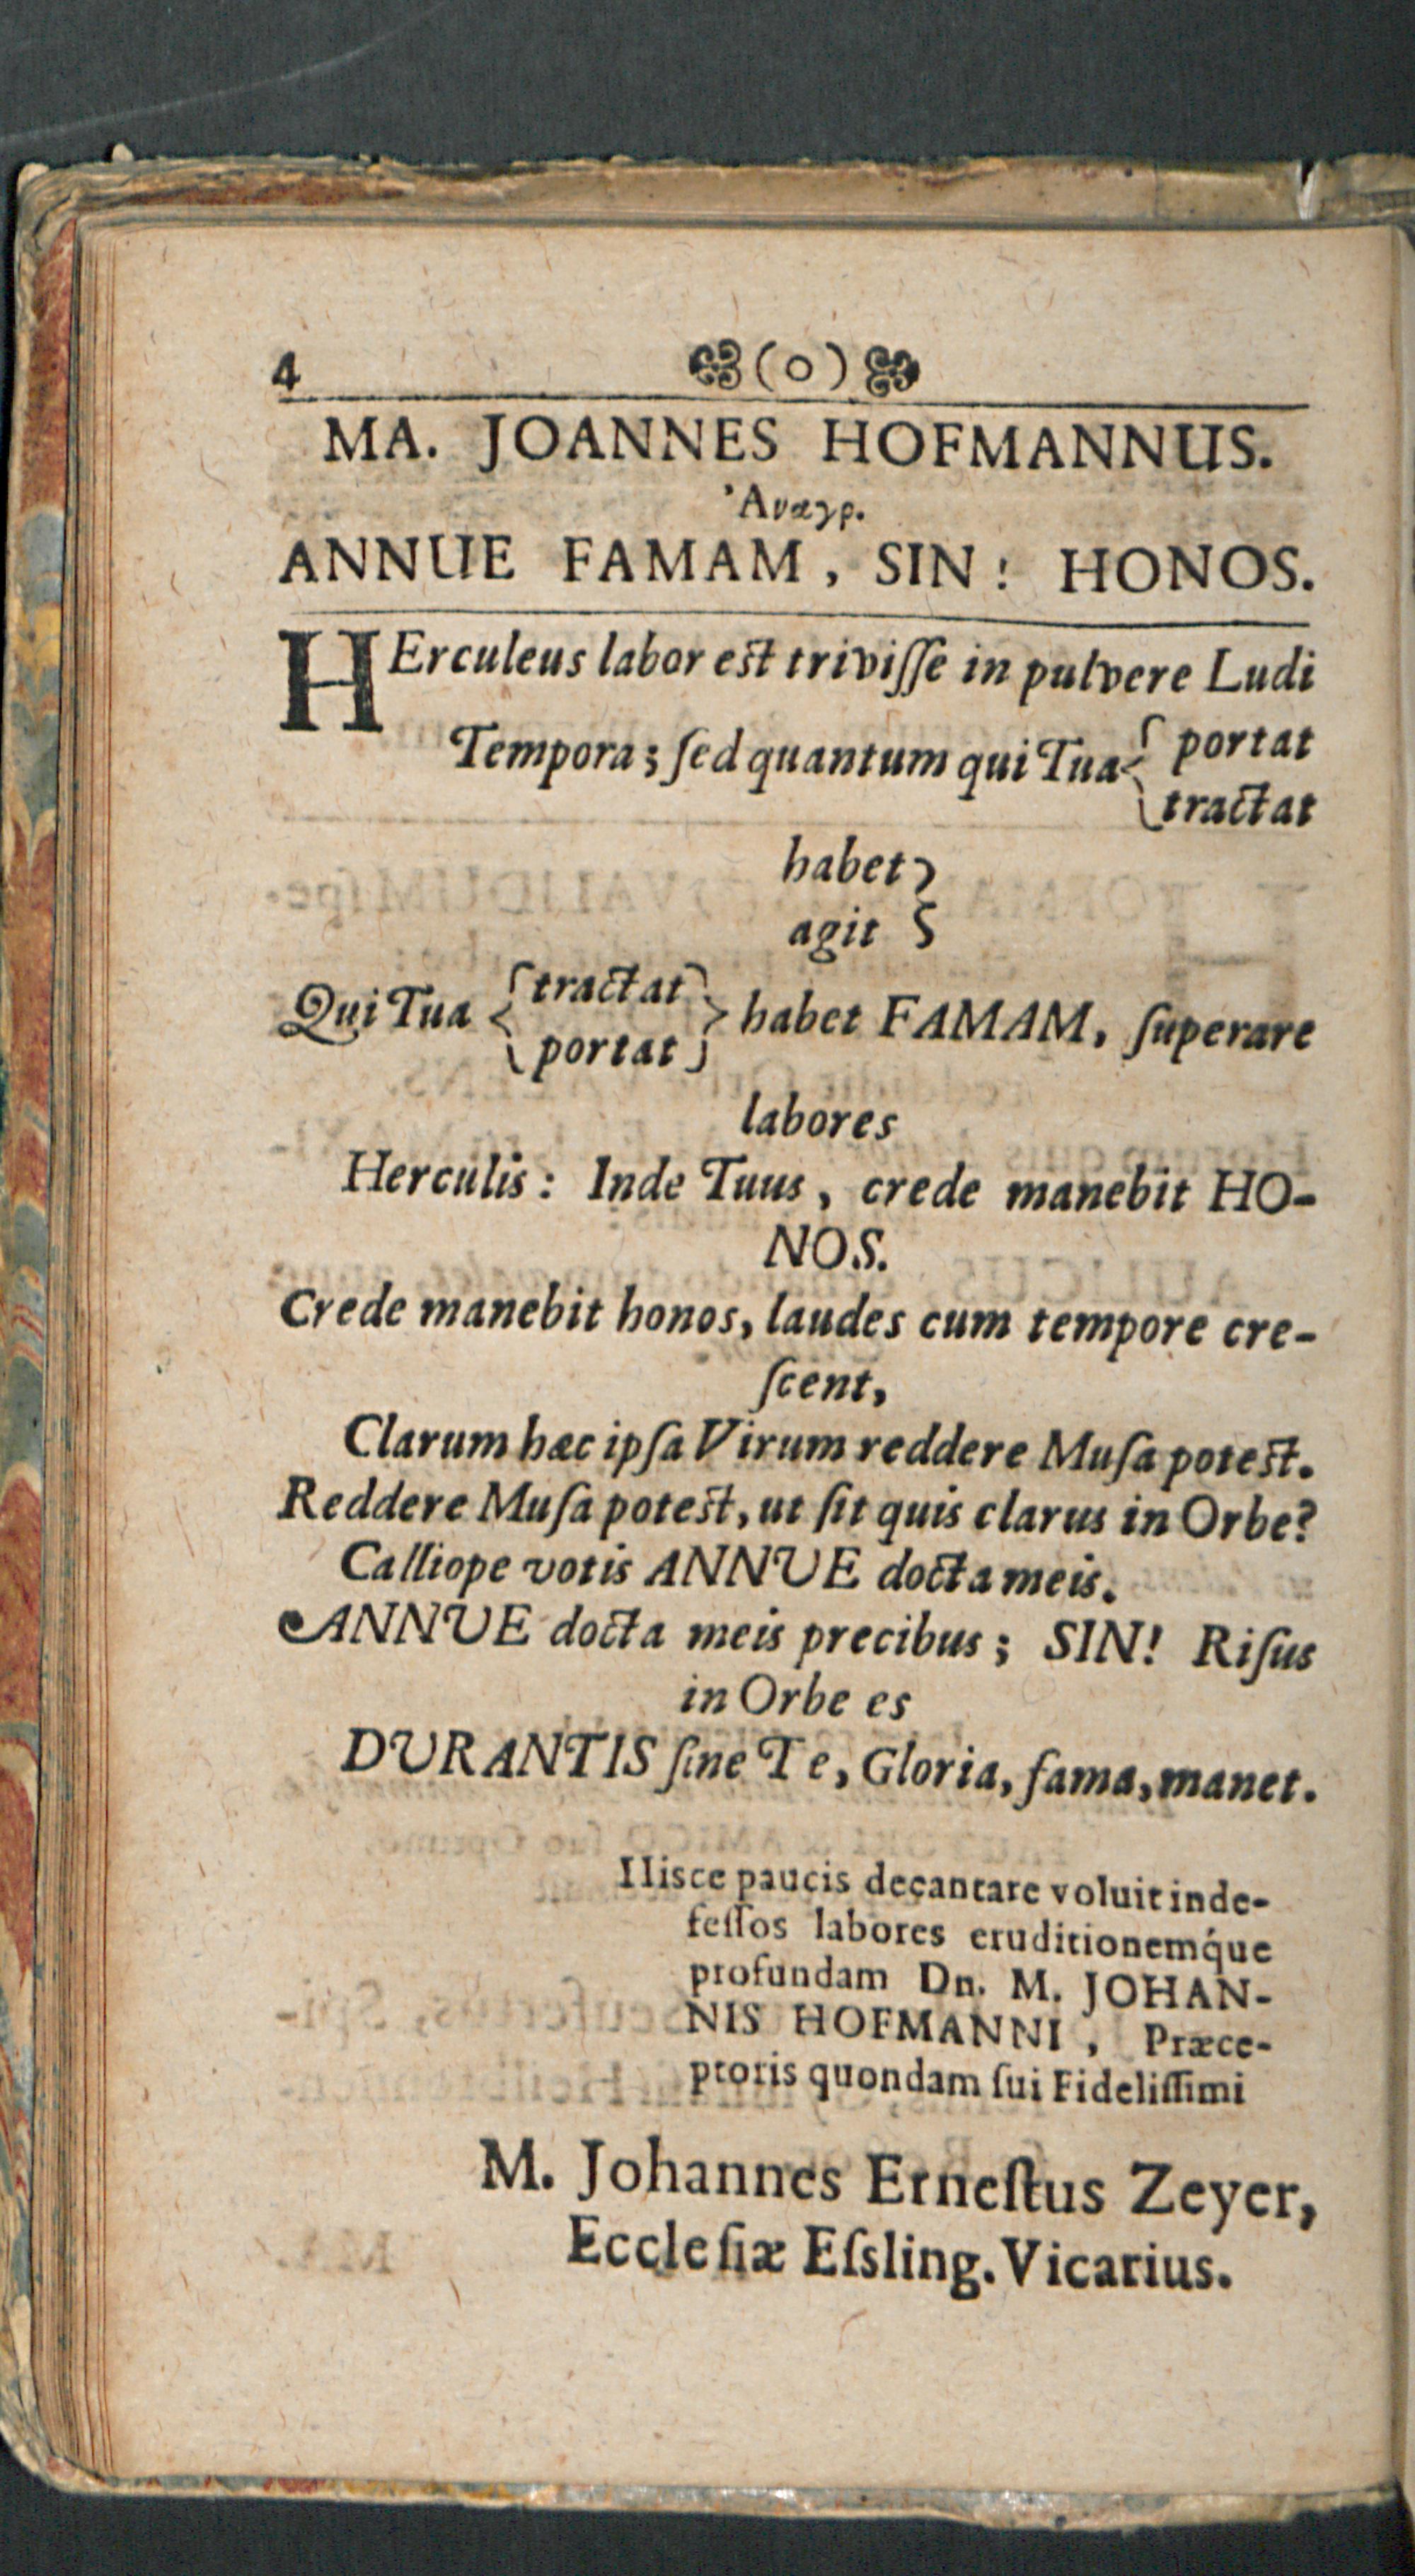 4 (o)
MA. JOANNES HOFMANNUS.
Ἀναγρ.
ANNUE FAMAM, SIN: HONOS.
HErculeus labor est triviſſe in pulvere Ludi
Tempora; ſed quantum qui Tua { portat
tractat
habet }
agit
Qui Tua { tractat } habet FAMAM, ſuperare
portat
labores
Herculis: Inde Tuus, crede manebit HO-
NOS.
Crede manebit honos, laudes cum tempore cre-
ſcent,
Clarum hæc ipſa Virum reddere Muſa potest.
Reddere Muſa potest, ut ſit quis clarus in Orbe?
Calliope votis ANNVE docta meis.
ANNVE docta meis precibus; SIN! Riſus
in Orbe es
DVRANTIS ſine Te, Gloria, fama, manet.
Hisce paucis decantare voluit inde-
feſſos labores eruditionemq́ue
profundam Dn. M. JOHAN-
NIS HOFMANNI, Præce-
ptoris quondam ſui Fideliſſimi
M. Johannes Erneſtus Zeyer,
Eccleſiæ Eſsling. Vicarius.